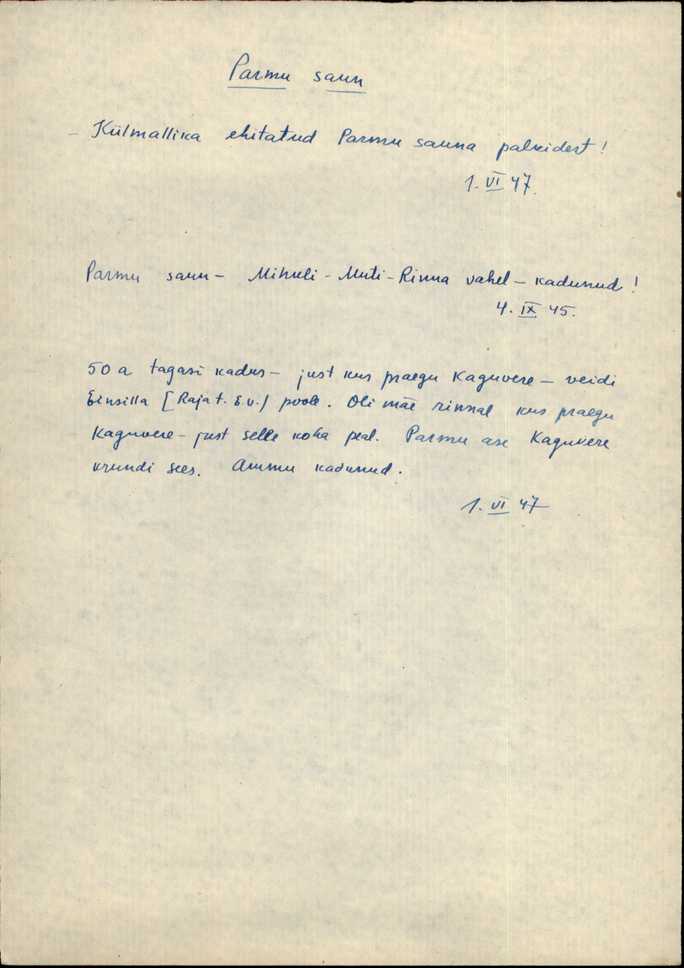 Parmu saun
- Külmallika ehitatud Parmu sauna palkidest!
1. VI 47.
Parmu saun - Mihkli - Muti - Rinna vahel - kadunud!
4. IX 45.
50 a tagasi kadus - just kus praegu Kaguvere - veidi
Einsilla [Raja t. E.V.] poole. Oli mäe rinnal kus praegu
Kaguvere - just selle koha peal. Parmu ase Kaguvere
krundi sees. Ammu kadunud.
1. VI 47